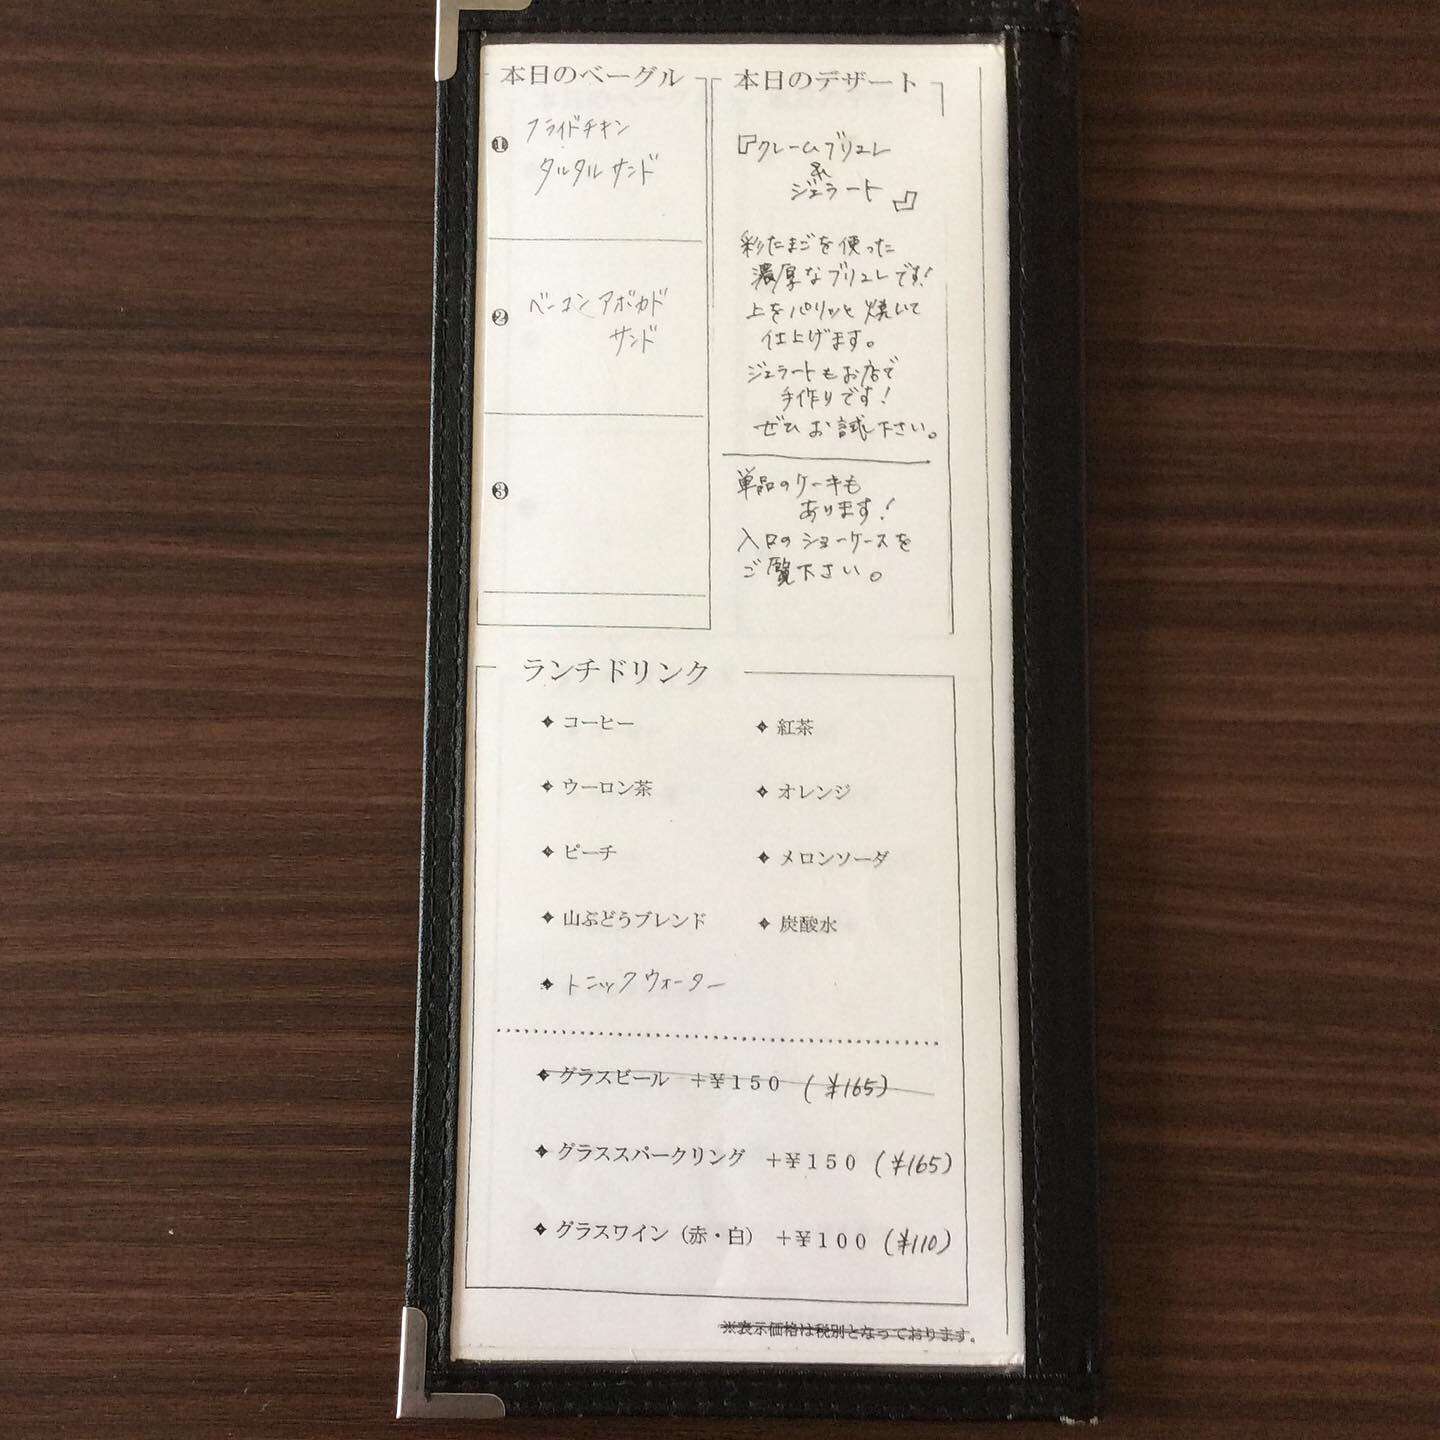 本日のベーグル
❶ フライドチキン
タルタルサンド
❷ ベーコンアボカド
サンド
❸
本日のデザート
『クレームブリュレ
&
ジェラート』
彩たまごを使った
濃厚なブリュレです!
上をパリッと焼いて
仕上げます。
ジェラートもお店で
手作りです!
ぜひお試し下さい。
単品のケーキも
あります!
入口のショーケースを
ご覧下さい。
ランチドリンク
コーヒー
紅茶
ウーロン茶
オレンジ
ピーチ
メロンソーダ
山ぶどうブレンド
炭酸水
トニックウォーター
グラスビール +¥150 (¥165)
グラススパークリング +¥150 (¥165)
グラスワイン(赤・白) +¥100 (¥110)
※表示価格は税別となっております。